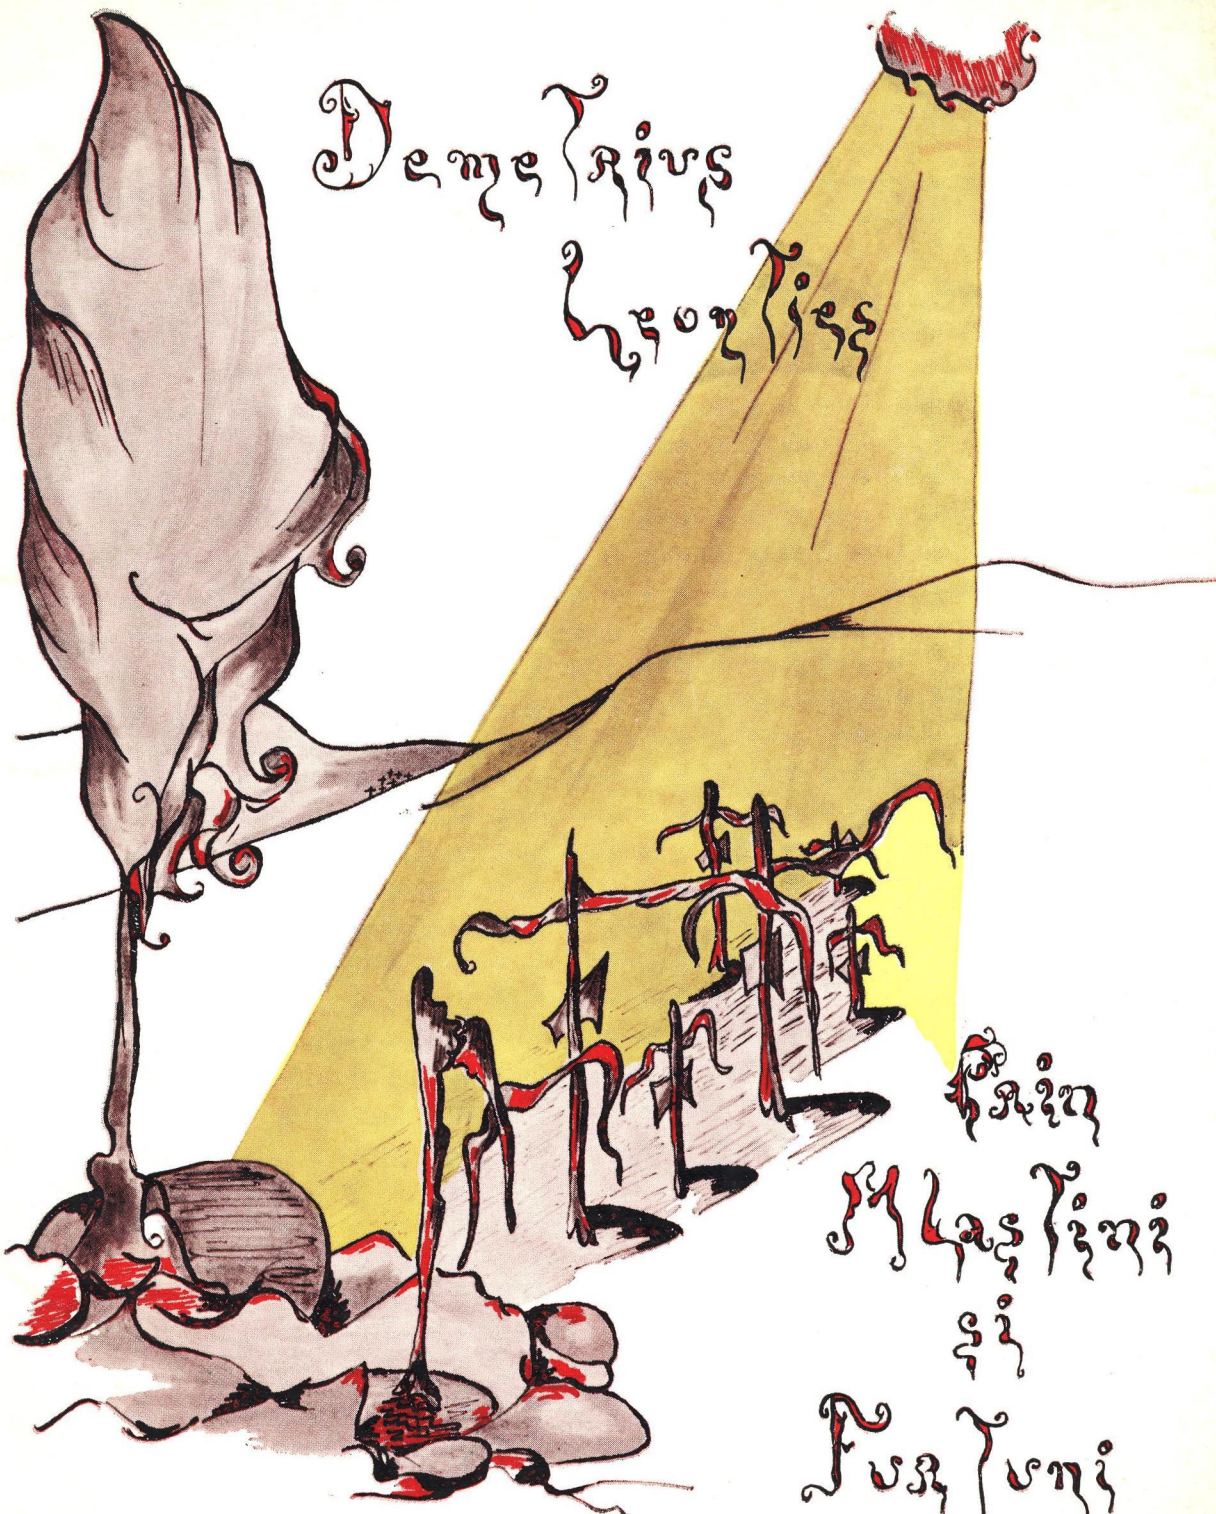 Demetrius
Leonties
Prin
Mlastini
și
Furtuni